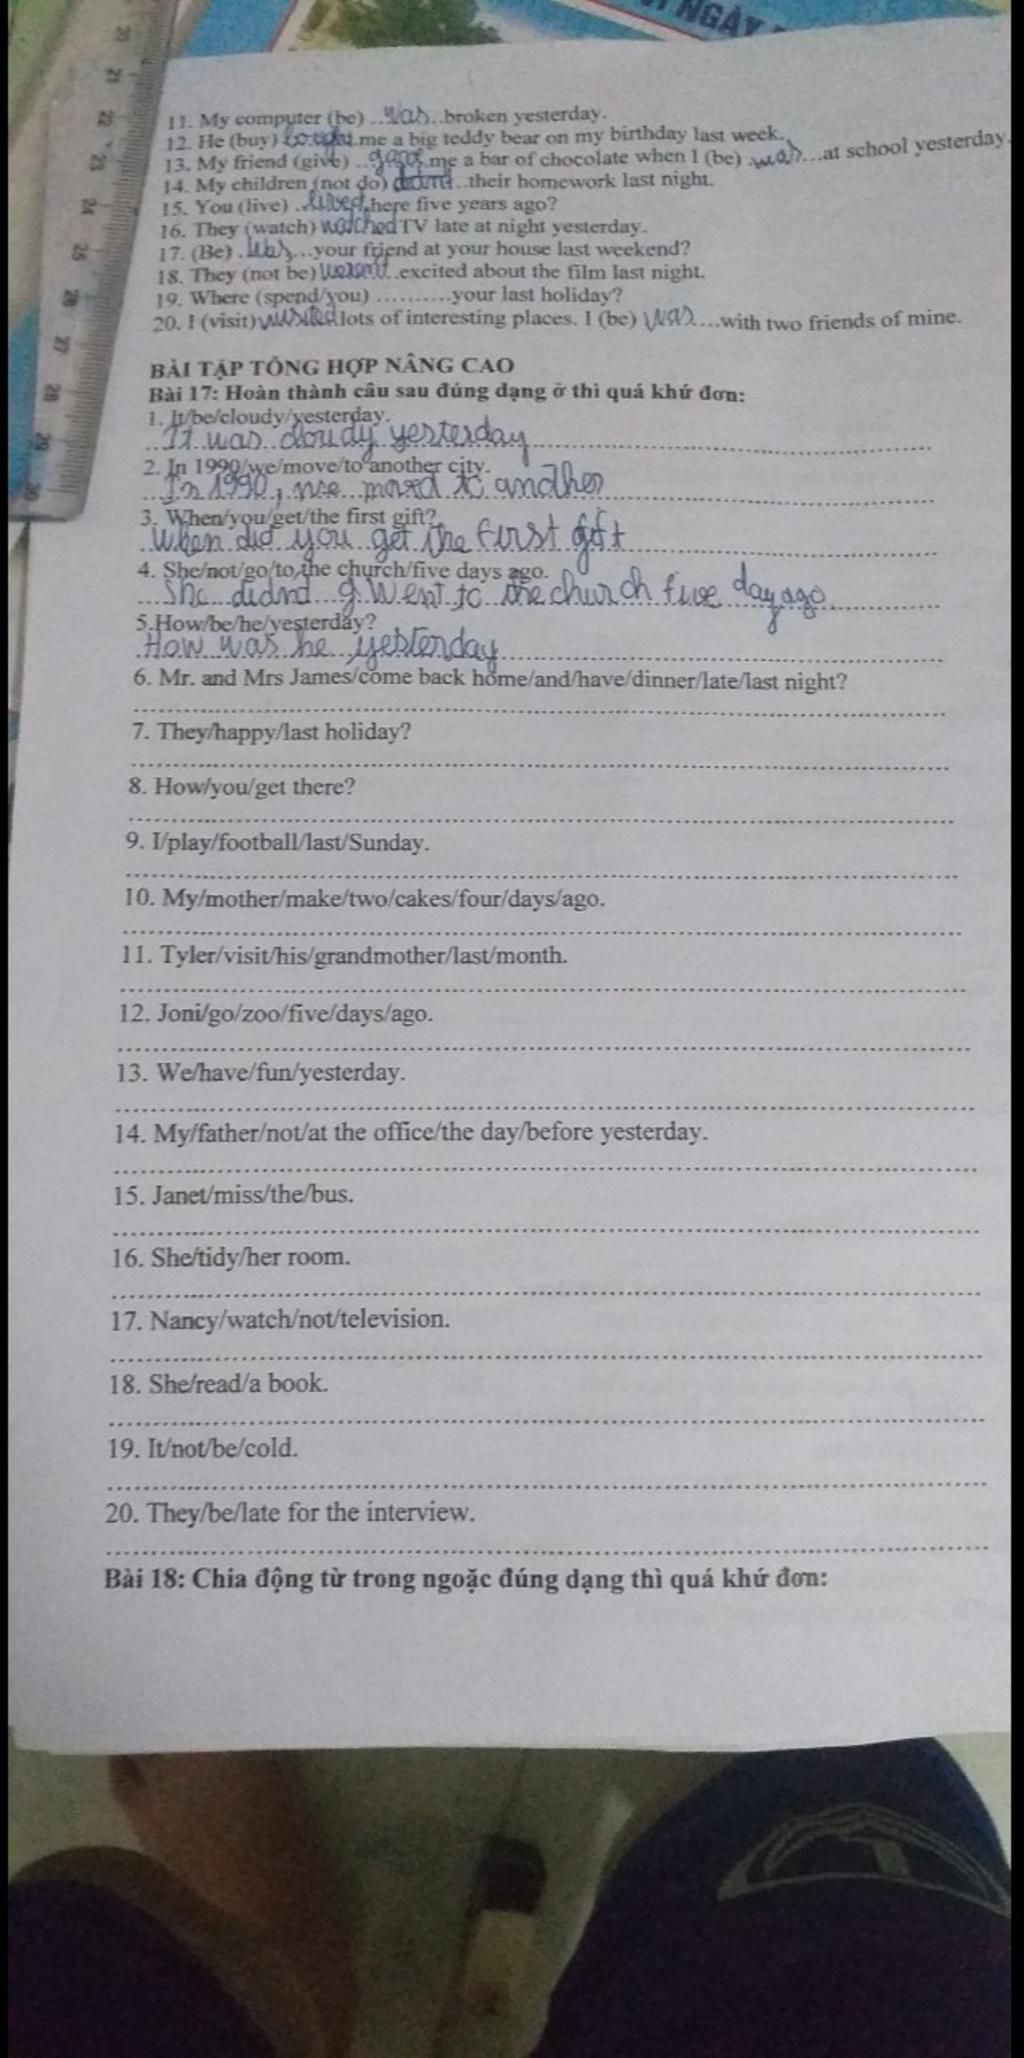 NGÀY
11. My computer (be) ..was..broken yesterday.
12. He (buy) bought.me a big teddy bear on my birthday last week.
13. My friend (give) ..gave.me a bar of chocolate when I (be) .was...at school yesterday.
14. My children (not do) ..their homework last night.
15. You (live) .lived.here five years ago?
16. They (watch) watched TV late at night yesterday.
17. (Be) .Was...your friend at your house last weekend?
18. They (not be) weren't..excited about the film last night.
19. Where (spend/you) ..........your last holiday?
20. I (visit) visited lots of interesting places. I (be) was...with two friends of mine.
BÀI TẬP TỔNG HỢP NÂNG CAO
Bài 17: Hoàn thành câu sau đúng dạng ở thì quá khứ đơn:
1. It/be/cloudy/yesterday.
It was cloudy yesterday
2. In 1990/we/move/to another city.
In 1990, we moved to another
3. When/you/get/the first gift?
When did you get the first gift
4. She/not/go/to/the church/five days ago.
She didnd g went to the church five day ago
5.How/be/he/yesterday?
How was he yesterday
6. Mr. and Mrs James/come back home/and/have/dinner/late/last night?
7. They/happy/last holiday?
8. How/you/get there?
9. I/play/football/last/Sunday.
10. My/mother/make/two/cakes/four/days/ago.
11. Tyler/visit/his/grandmother/last/month.
12. Joni/go/zoo/five/days/ago.
13. We/have/fun/yesterday.
14. My/father/not/at the office/the day/before yesterday.
15. Janet/miss/the/bus.
16. She/tidy/her room.
17. Nancy/watch/not/television.
18. She/read/a book.
19. It/not/be/cold.
20. They/be/late for the interview.
Bài 18: Chia động từ trong ngoặc đúng dạng thì quá khứ đơn: